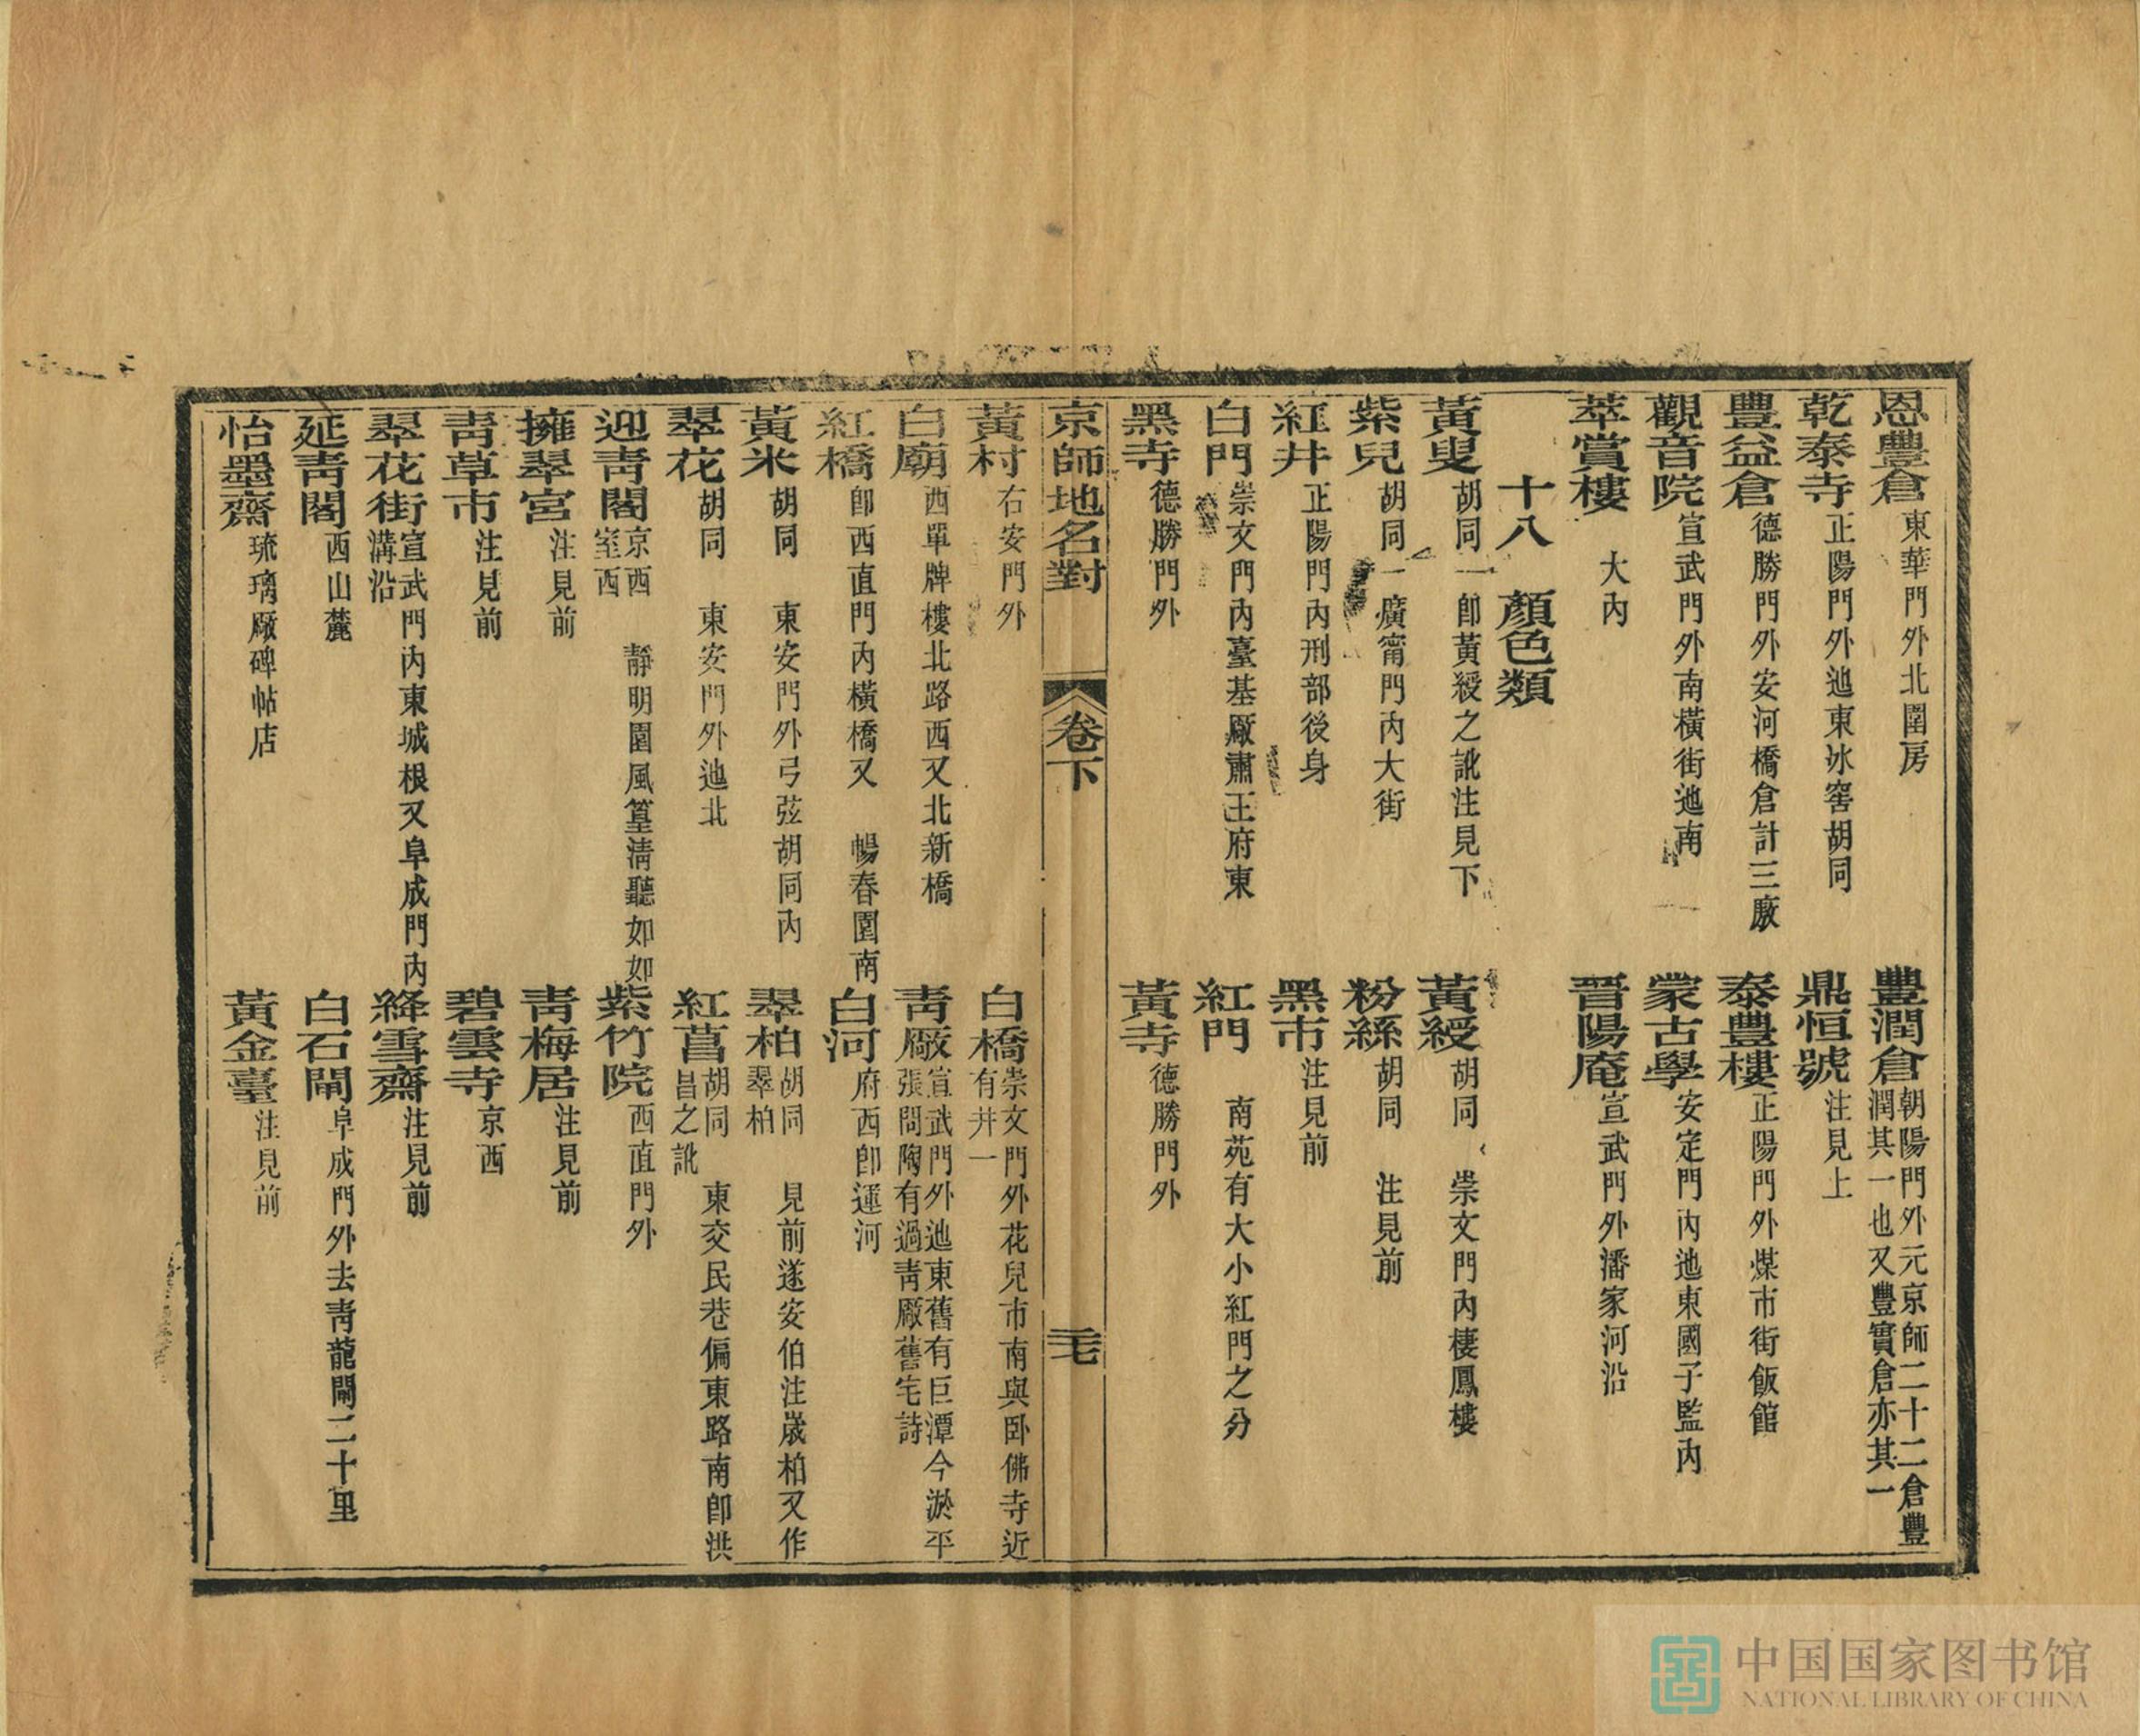 恩豐倉東華門外北圍房　豐潤倉朝陽門外元京師二十二倉豐潤其一也又豐實倉亦其一
乾泰寺正陽門外迆東冰窖胡同　鼎恒號注見上
豐益倉德勝門外安河橋倉計三廒　泰豐樓正陽門外煤市街飯館
觀音院宣武門外南橫街迆南　蒙古學安定門內迆東國子監內
萃賞樓　大內　晉陽庵宣武門外潘家河沿
十八　顏色類
黃叟胡同一卽黃綬之訛注見下　黃綬胡同　崇文門內棲鳳樓
紫兒胡同一廣甯門內大街　粉絲胡同　注見前
紅井正陽門內刑部後身　黑市注見前
白門崇文門內臺基厰肅王府東　紅門　南苑有大小紅門之分
黑寺德勝門外　黃寺德勝門外
京師地名對　卷下　二七
黃村右安門外　白橋崇文門外花兒市南與卧佛寺近有井一
白廟西單牌樓北路西又北新橋　靑厰宣武門外迆東舊有巨潭今淤平張問陶有過靑厰舊宅詩
紅橋卽西直門內橫橋又　暢春園南　白河府西卽運河
黃米胡同　東安門外弓弦胡同內　翠柏胡同　見前遂安伯注歲柏又作翠柏
翠花胡同　東安門外迆北　紅菖胡同　東交民巷偏東路南卽洪昌之訛
迎靑閣京西　靜明園風篁淸聽如如室西　紫竹院西直門外
擁翠宮注見前　靑梅居注見前
靑草市注見前　碧雲寺京西
翠花街宣武門內東城根又阜成門內溝沿　絳雪齋注見前
延靑閣西山麓　白石閘阜成門外去靑龍閘二十里
怡墨齋琉璃厰碑帖店　黃金臺注見前
中国国家图书馆
NATIONAL LIBRARY OF CHINA